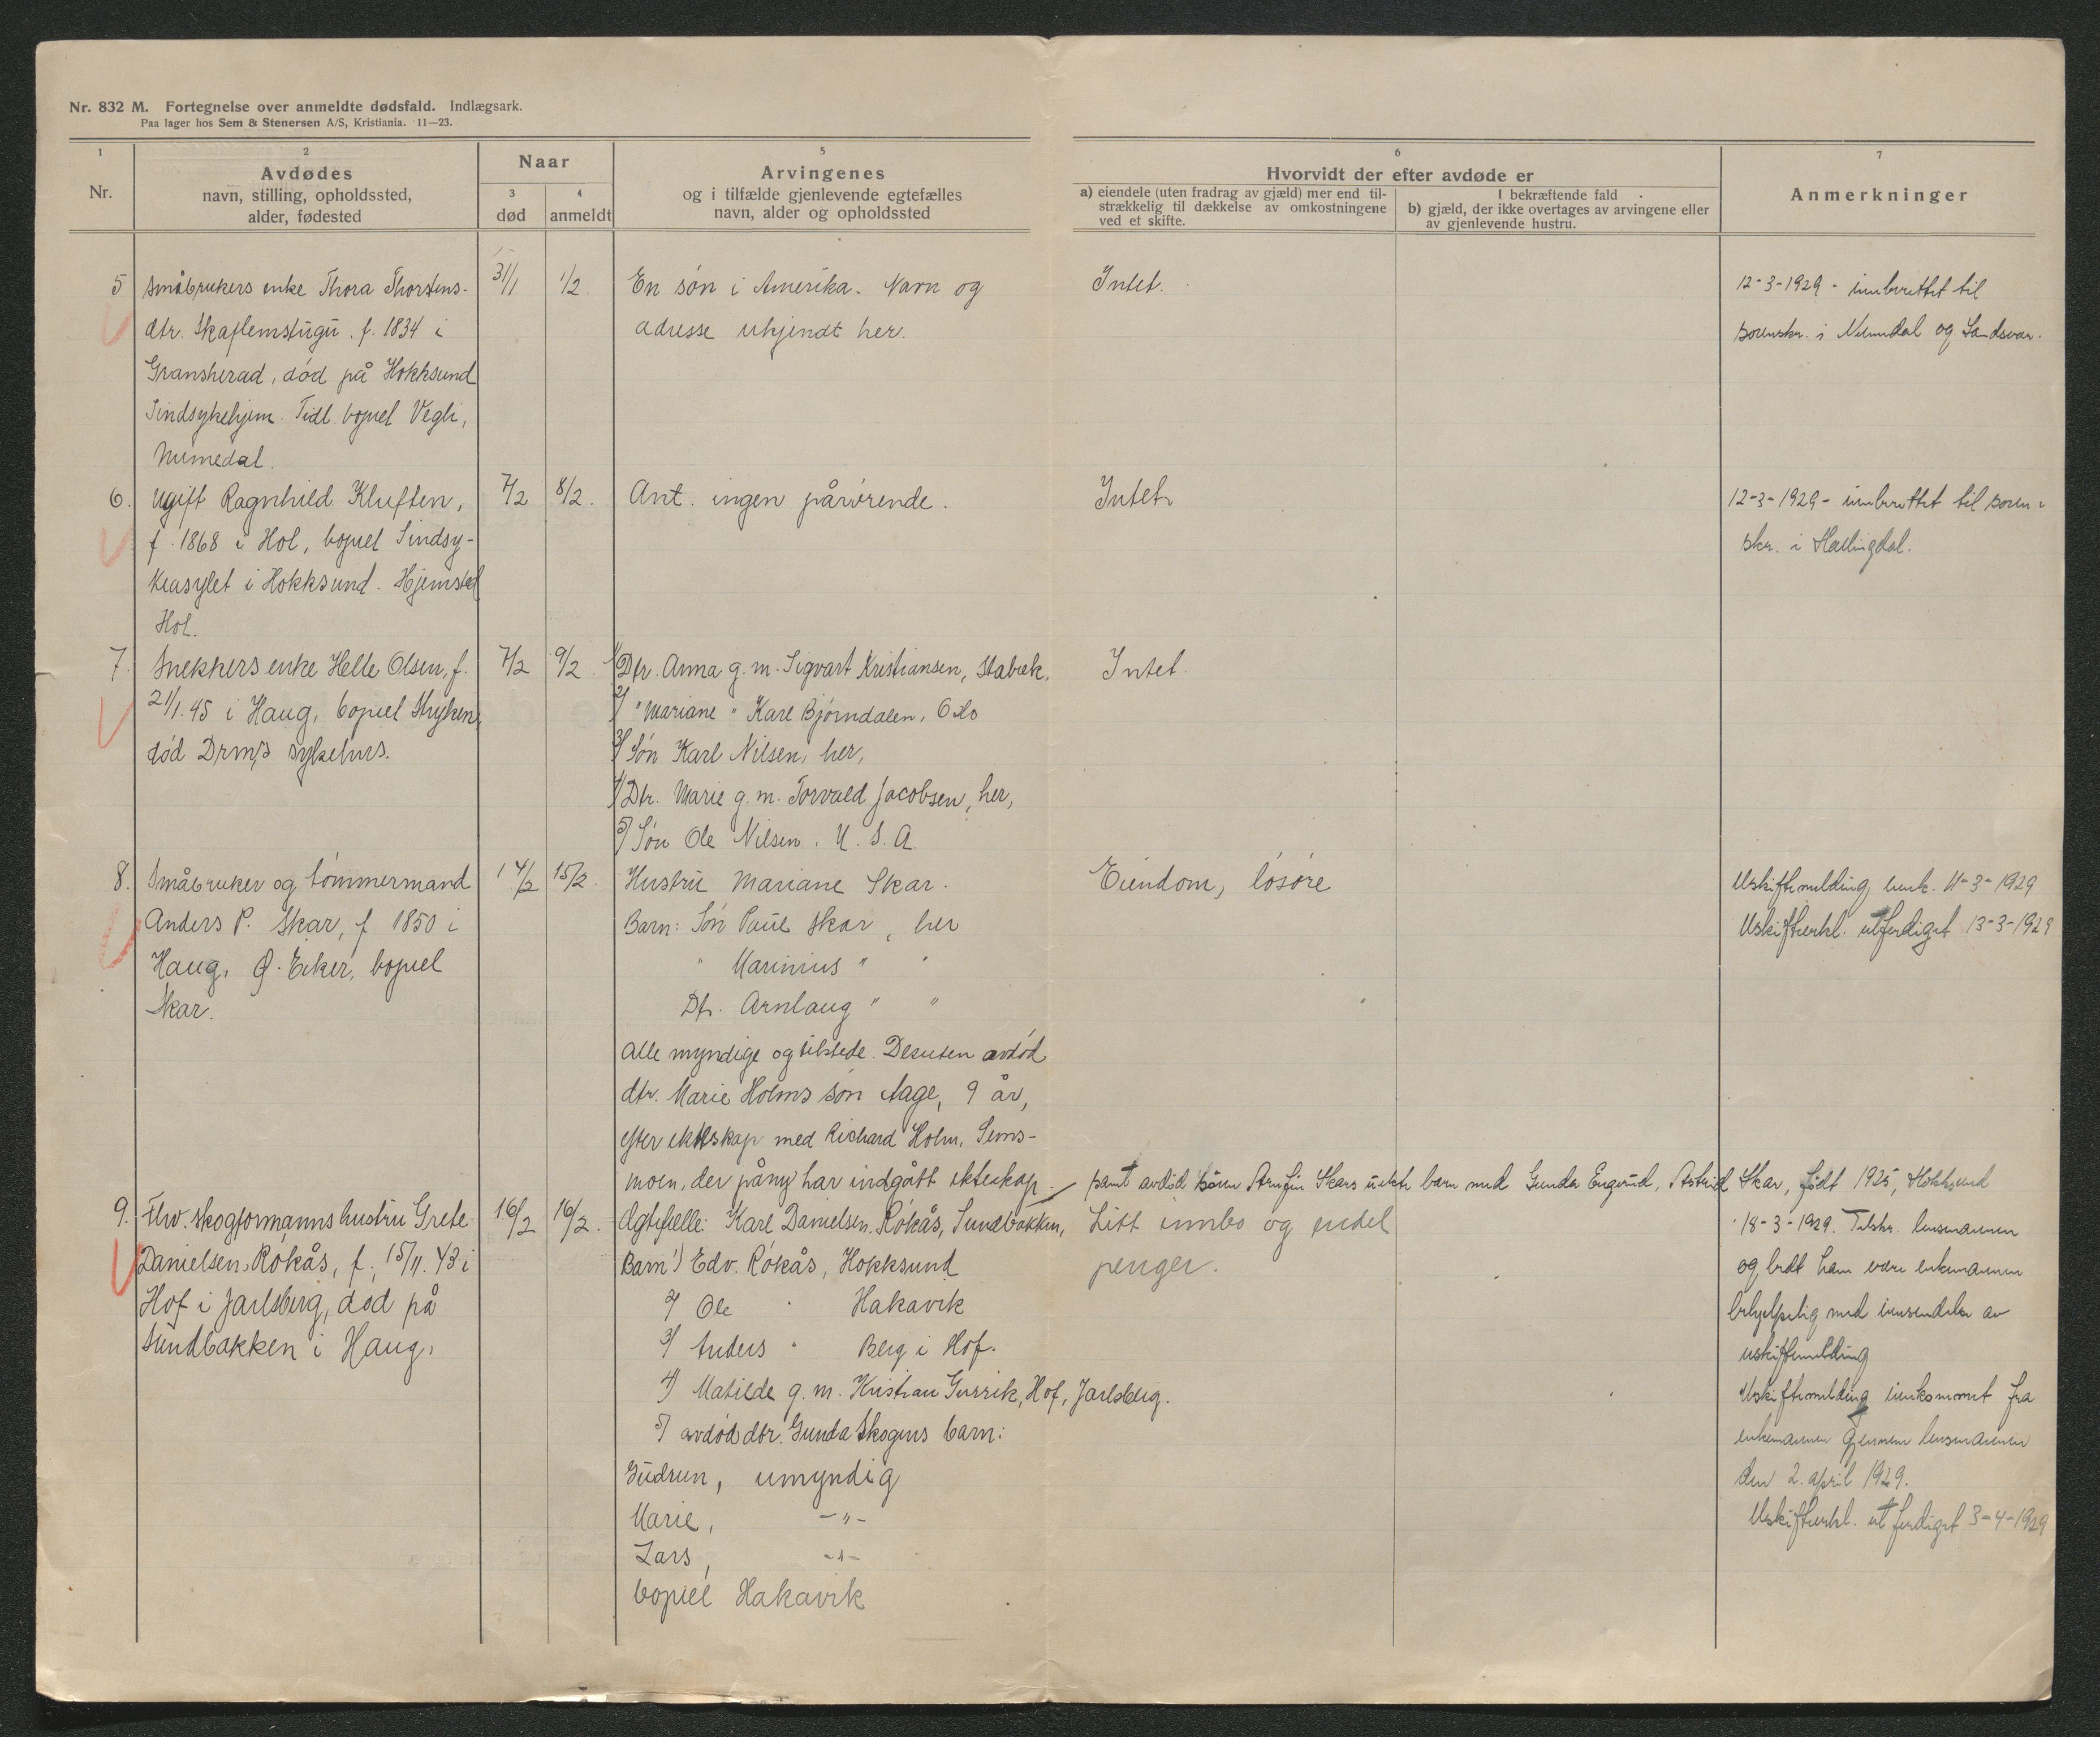 Nr. 832 M. Fortegnelse over anmeldte dødsfald. Indlægsark.
Paa lager hos Sem & Stenersen A/S, Kristiania. 11—23.
1
Nr.
2
Avdødes
navn, stilling, opholdssted,
alder, fødested
Naar
3
død
4
anmeldt
5
Arvingenes
og i tilfælde gjenlevende egtefælles
navn, alder og opholdssted
6
Hvorvidt der efter avdøde er
a) eiendele (uten fradrag av gjæld) mer end til-
strækkelig til dækkelse av omkostningene
ved et skifte.
I bekræftende fald
b) gjæld, der ikke overtages av arvingene eller
av gjenlevende hustru.
7
Anmerkninger
5 Småbrukers enke Thora Thorstens-
dtr. Skaflemstugu. f. 1834 i
Gransherad, död på Hokksund
Sindsykehjem. Tidl. bopæl Vegli,
Numedal.
31/1 1/2.
En sön i Amerika. Navn og
adresse ukjendt her.
Intet.
12-3-1929 - innberettet til
sorenskr. i Numedal og Sandsvær.
6. Ugift Ragnhild Kluften,
f. 1868 i Hol, bopæl Sindsy-
keasylet i Hokksund. Hjemsted
Hol.
7/2 8/2.
Ant. ingen pårörende.
Intet
12-3-1929 - innberettet til soren-
skr. i Hallingdal.
7. Snekkers enke Helle Olsen, f.
21/1.45 i Haug, bopæl Stryken,
död Drms sykehus.
7/2 9/2.
1) Dtr. Anna g. m. Sigvart Kristiansen, Stabæk,
2) " Mariane " Karl Björndalen, Oslo
3) Sön Karl Nilsen, her,
4) Dtr. Marie g. m. Torvald Jacobsen, her,
5) Sön Ole Nilsen. U. S. A.
Intet.
8. Småbruker og tömmermand
Anders P. Skar, f 1850 i
Haug, Ø. Eiker, bopæl
Skar.
14/2 15/2.
Hustru Mariane Skar.
Barn: Sön Paul Skar, her
" Marinius " "
Dtr. Arnlaug " "
Alle myndige og tilstede. Desuten avdöd
dtr. Marie Holms sön Aage, 9 år,
efter ekteskap med Richard Holm, Sems-
moen, der påny har indgått ekteskap.
samt avdöd sönn Arnfin Skars uekte barn med Gunda Engerud, Astrid Skar, född 1925, Hokksund
Eiendom, lösöre
Uskiftemelding innk. 11-3-1929
Uskifteerkl. utferdiget 13-3-1929
9. Fhv. skogformanns hustru Grete
Danielsen Rökås, f. 15/11. 43 i
Hof i Jarlsberg, död på
Sundbakken i Haug.
16/2 16/2.
Ægtefælle: Karl Danielsen Rökås, Sundbakken,
Barn 1) Edv. Rökås, Hokksund
2) Ole " Hakavik
3) Anders " Berg i Hof.
4) Matilde g. m. Kristian Gurrik, Hof, Jarlsberg.
5) avdöd dtr. Gunda Skogens barn:
Gudrun, umyndig
Marie, -"-
Lars, -"-
bopæl Hakavik
Litt innbo og endel
penger.
18-3-1929. Tilskr. lensmannen
og bedt ham være enkemannen
behjelpelig med innsendelse av
uskiftemelding
Uskiftemelding innkommet fra
enkemannen gjennem lensmannen
den 2. april 1929.
Uskifteerkl. utferdiget 3-4-1929